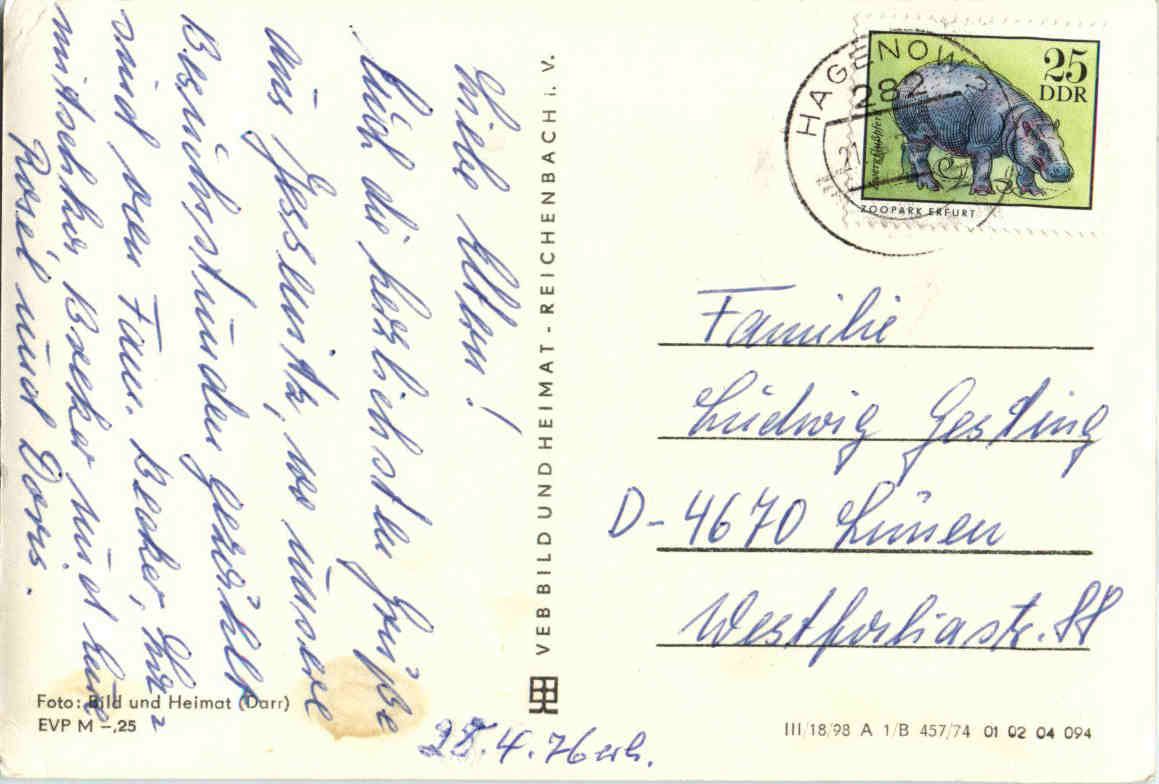 Liebe Eltern!
Euch die herzlichsten Grüße
aus Jessenitz, wo unsere
Besuchsstunden gezählt
sind von Fam. Becker, Ehr-
mitscher, Becker und Eure
Rosel und Doris.
Foto: Bild und Heimat (Darr)
EVP M –,25
28.4.76 erh.
VEB BILD UND HEIMAT - REICHENBACH i. V.
HAGENOW
282
21
25
DDR
Zwergflußpferd
ZOOPARK ERFURT
Familie
Ludwig Gesting
D-4670 Lünen
Westfaliastr. 88
III/18/98 A 1/B 457/74 01 02 04 094